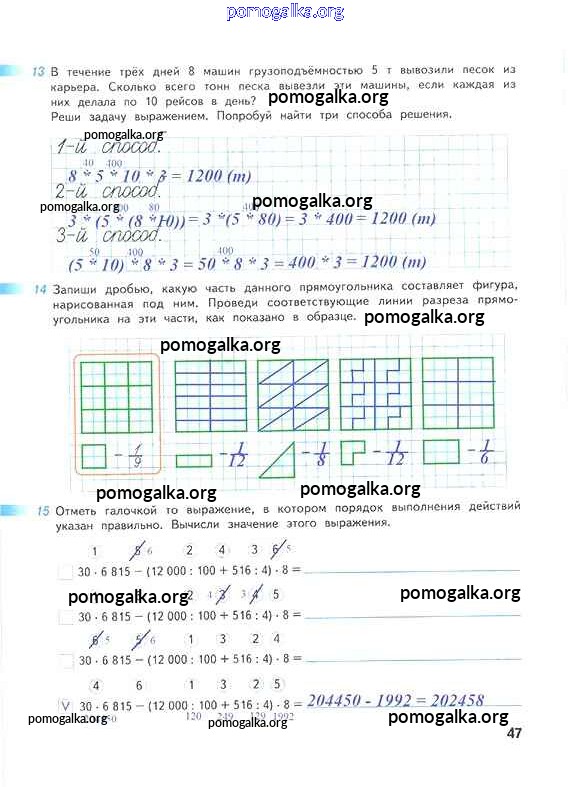 pomogalka.org
13 В течение трёх дней 8 машин грузоподъёмностью 5 т вывозили песок из
карьера. Сколько всего тонн песка вывезли эти машины, если каждая из
них делала по 10 рейсов в день?
pomogalka.org
Реши задачу выражением. Попробуй найти три способа решения.
pomogalka.org
1-й способ.
40 400
8 * 5 * 10 * 3 = 1200 (т)
2-й способ.
pomogalka.org pomogalka.org
80 400
3 * (5 * (8 * 10)) = 3 * (5 * 80) = 3 * 400 = 1200 (т)
3-й способ.
50 400
(5 * 10) * 8 * 3 = 50 * 8 * 3 = 400 * 3 = 1200 (т)
14 Запиши дробью, какую часть данного прямоугольника составляет фигура,
нарисованная под ним. Проведи соответствующие линии разреза прямо-
угольника на эти части, как показано в образце.
pomogalka.org
pomogalka.org
- 1/9 - 1/12 - 1/8 - 1/12 - 1/6
pomogalka.org pomogalka.org
15 Отметь галочкой то выражение, в котором порядок выполнения действий
указан правильно. Вычисли значение этого выражения.
1 5 6 2 4 3 6 5
30 · 6 815 − (12 000 : 100 + 516 : 4) · 8 =
pomogalka.org pomogalka.org
2 4 3 3 4 5
30 · 6 815 − (12 000 : 100 + 516 : 4) · 8 =
6 5 5 6 1 3 2 4
30 · 6 815 − (12 000 : 100 + 516 : 4) · 8 =
4 6 1 3 2 5
V 30 · 6 815 − (12 000 : 100 + 516 : 4) · 8 = 204450 - 1992 = 202458
120 249 129 1992
pomogalka.org pomogalka.org
47